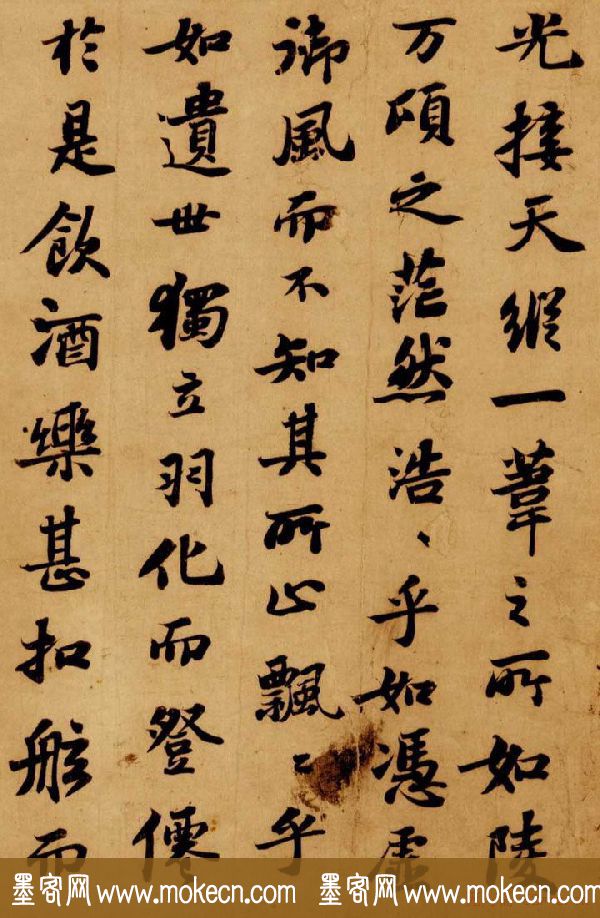 光接天縱一葦之所如陵
万頃之茫然浩〻乎如馮虛
御風而不知其所止飄〻乎
如遺世獨立羽化而登僊
於是飲酒樂甚扣舷而
墨客网 www.mokecn.com 墨客网 www.mokecn.com